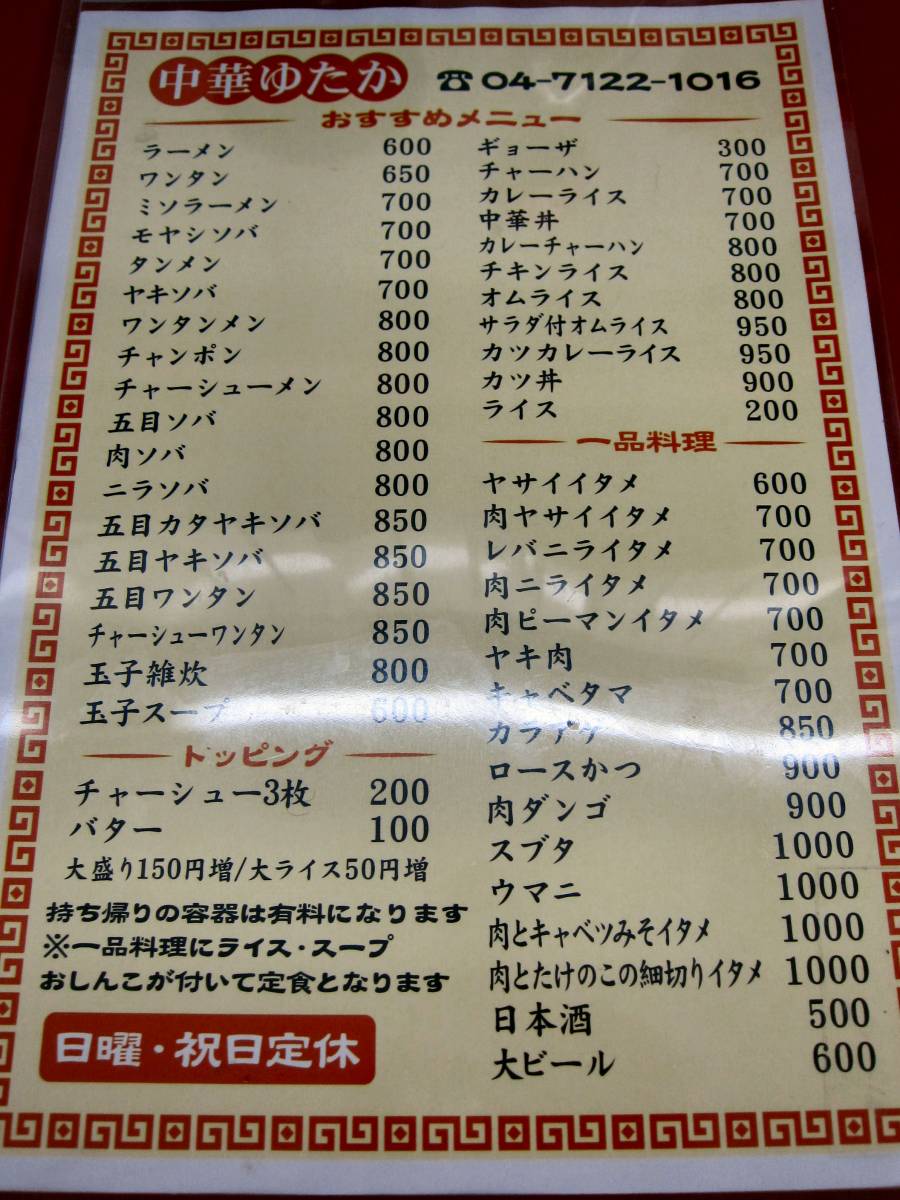 中華ゆたか ☎04-7122-1016
おすすめメニュー
ラーメン 600
ワンタン 650
ミソラーメン 700
モヤシソバ 700
タンメン 700
ヤキソバ 700
ワンタンメン 800
チャンポン 800
チャーシューメン 800
五目ソバ 800
肉ソバ 800
ニラソバ 800
五目カタヤキソバ 850
五目ヤキソバ 850
五目ワンタン 850
チャーシューワンタン 850
玉子雑炊 800
玉子スープ 600
トッピング
チャーシュー3枚 200
バター 100
大盛り150円増/大ライス50円増
持ち帰りの容器は有料になります
※一品料理にライス・スープ
おしんこが付いて定食となります
日曜・祝日定休
ギョーザ 300
チャーハン 700
カレーライス 700
中華丼 700
カレーチャーハン 800
チキンライス 800
オムライス 800
サラダ付オムライス 950
カツカレーライス 950
カツ丼 900
ライス 200
一品料理
ヤサイイタメ 600
肉ヤサイイタメ 700
レバニライタメ 700
肉ニライタメ 700
肉ピーマンイタメ 700
ヤキ肉 700
キャベタマ 700
カラアゲ 850
ロースかつ 900
肉ダンゴ 900
スブタ 1000
ウマニ 1000
肉とキャベツみそイタメ 1000
肉とたけのこの細切りイタメ 1000
日本酒 500
大ビール 600